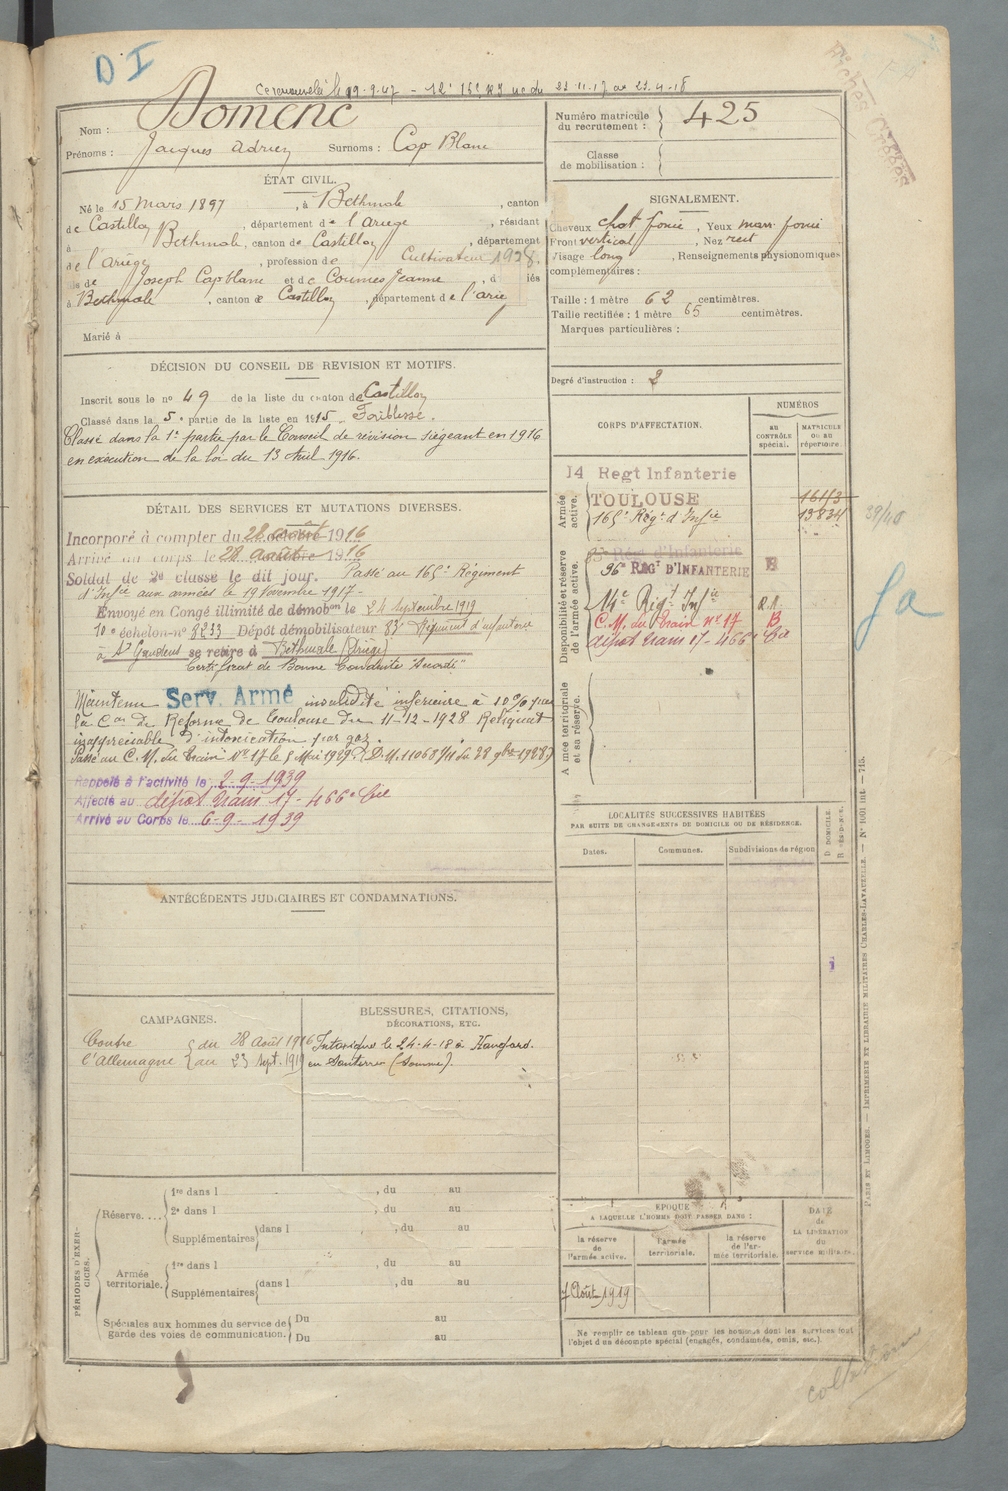 D I
Nom : Domenc
Prénoms : Jacques Adrien Surnoms : Cap Blanc
ÉTAT CIVIL.
Né le 15 Mars 1897, à Bethmale, canton
de Castillon, département de l'Ariège, résidant
à Bethmale, canton de Castillon, département
de l'Ariège, profession de Cultivateur 1928.
fils de Joseph Cap blanc et de Coumes Jeanne, d iés
à Bethmale, canton de Castillon, département de l'Arieg
Marié à
DÉCISION DU CONSEIL DE REVISION ET MOTIFS.
Inscrit sous le n° 49 de la liste du canton de Castillon
Classé dans la 5e partie de la liste en 1915 Faiblesse.
Classé dans la 1e partie par le Conseil de révision siégeant en 1916
en exécution de la loi du 13 Avril 1916.
DÉTAIL DES SERVICES ET MUTATIONS DIVERSES.
Incorporé à compter du 28 août 1916
Arrivé au corps le 28 août 1916
Soldat de 2e classe le dit jour. Passé au 165e Régiment
d'Infie aux armées le 19 Novembre 1917.-
Envoyé en Congé illimité de démobon le 24 Septembre 1919
10e échelon n° 8233 Dépôt démobilisateur 83e Régiment d'infanterie
à St Gaudens se retire à Bethmale (Ariège)
Certificat de Bonne Conduite "Accordé"
Maintenu Serv. Armé invalidité inférieure à 10% par
la Con de Réforme de Toulouse du 11-12-1928 Reliquat
inappréciable d'intoxication par gaz.
Passé au C.M. du Train N° 17 le
Rappelé à l'activité le 2-9-1939
Affecté au dépôt train 17 - 466e Cie
Arrivé au Corps le 6-9-1939
ANTÉCÉDENTS JUDICIAIRES ET CONDAMNATIONS.
CAMPAGNES.
Contre l'Allemagne { du 28 Août 1916
au 23 Sept. 1919
BLESSURES, CITATIONS,
DÉCORATIONS, ETC.
Intoxiqué le 24-4-18 à Hangard
en Santerre (Somme).
PÉRIODES D'EXERCICES.
Réserve....
1re dans l , du au
2e dans l , du au
Supplémentaires dans l , du au
Armée territoriale.
1re dans l , du au
Supplémentaires dans l , du au
Spéciales aux hommes du service de
garde des voies de communication.
Du au
Du au
Numéro matricule
du recrutement : 425
Classe
de mobilisation :
SIGNALEMENT.
Cheveux chat foncé, Yeux marr foncé
Front vertical, Nez rect
Visage long, Renseignements physionomiques
complémentaires :
Taille : 1 mètre 62 centimètres.
Taille rectifiée : 1 mètre 65 centimètres.
Marques particulières :
Degré d'instruction : 2
CORPS D'AFFECTATION.
NUMÉROS
AU CONTRÔLE spécial.
MATRICULE ou au répertoire.
Armée active.
14 Regt Infanterie
TOULOUSE
165e Régt d'Infie
16113
13834
39/40
Disponibilité et réserve de l'armée active.
83e Rég d'Infanterie
96e RÉGt D'INFANTERIE
14e Régt Infie
C.M. du train n° 17 B
dépot train 17 - 466e Cie
Armée territoriale et sa réserve.
LOCALITÉS SUCCESSIVES HABITÉES
PAR SUITE DE CHANGEMENTS DE DOMICILE OU DE RÉSIDENCE.
Dates.
Communes.
Subdivisions de région
D. DOMICILE
R. RÉSIDENCE.
ÉPOQUE
A LAQUELLE L'HOMME DOIT PASSER DANS :
la réserve de l'armée active.
l'armée territoriale.
la réserve de l'armée territoriale.
DATE de LA LIBÉRATION du service militaire.
7 Août 1919
Ne remplir ce tableau que pour les hommes dont les services font
l'objet d'un décompte spécial (engagés, condamnés, omis, etc.).
PARIS ET LIMOGES. — IMPRIMERIE ET LIBRAIRIE MILITAIRES CHARLES-LAVAUZELLE. — N° 1001 int. — 715.